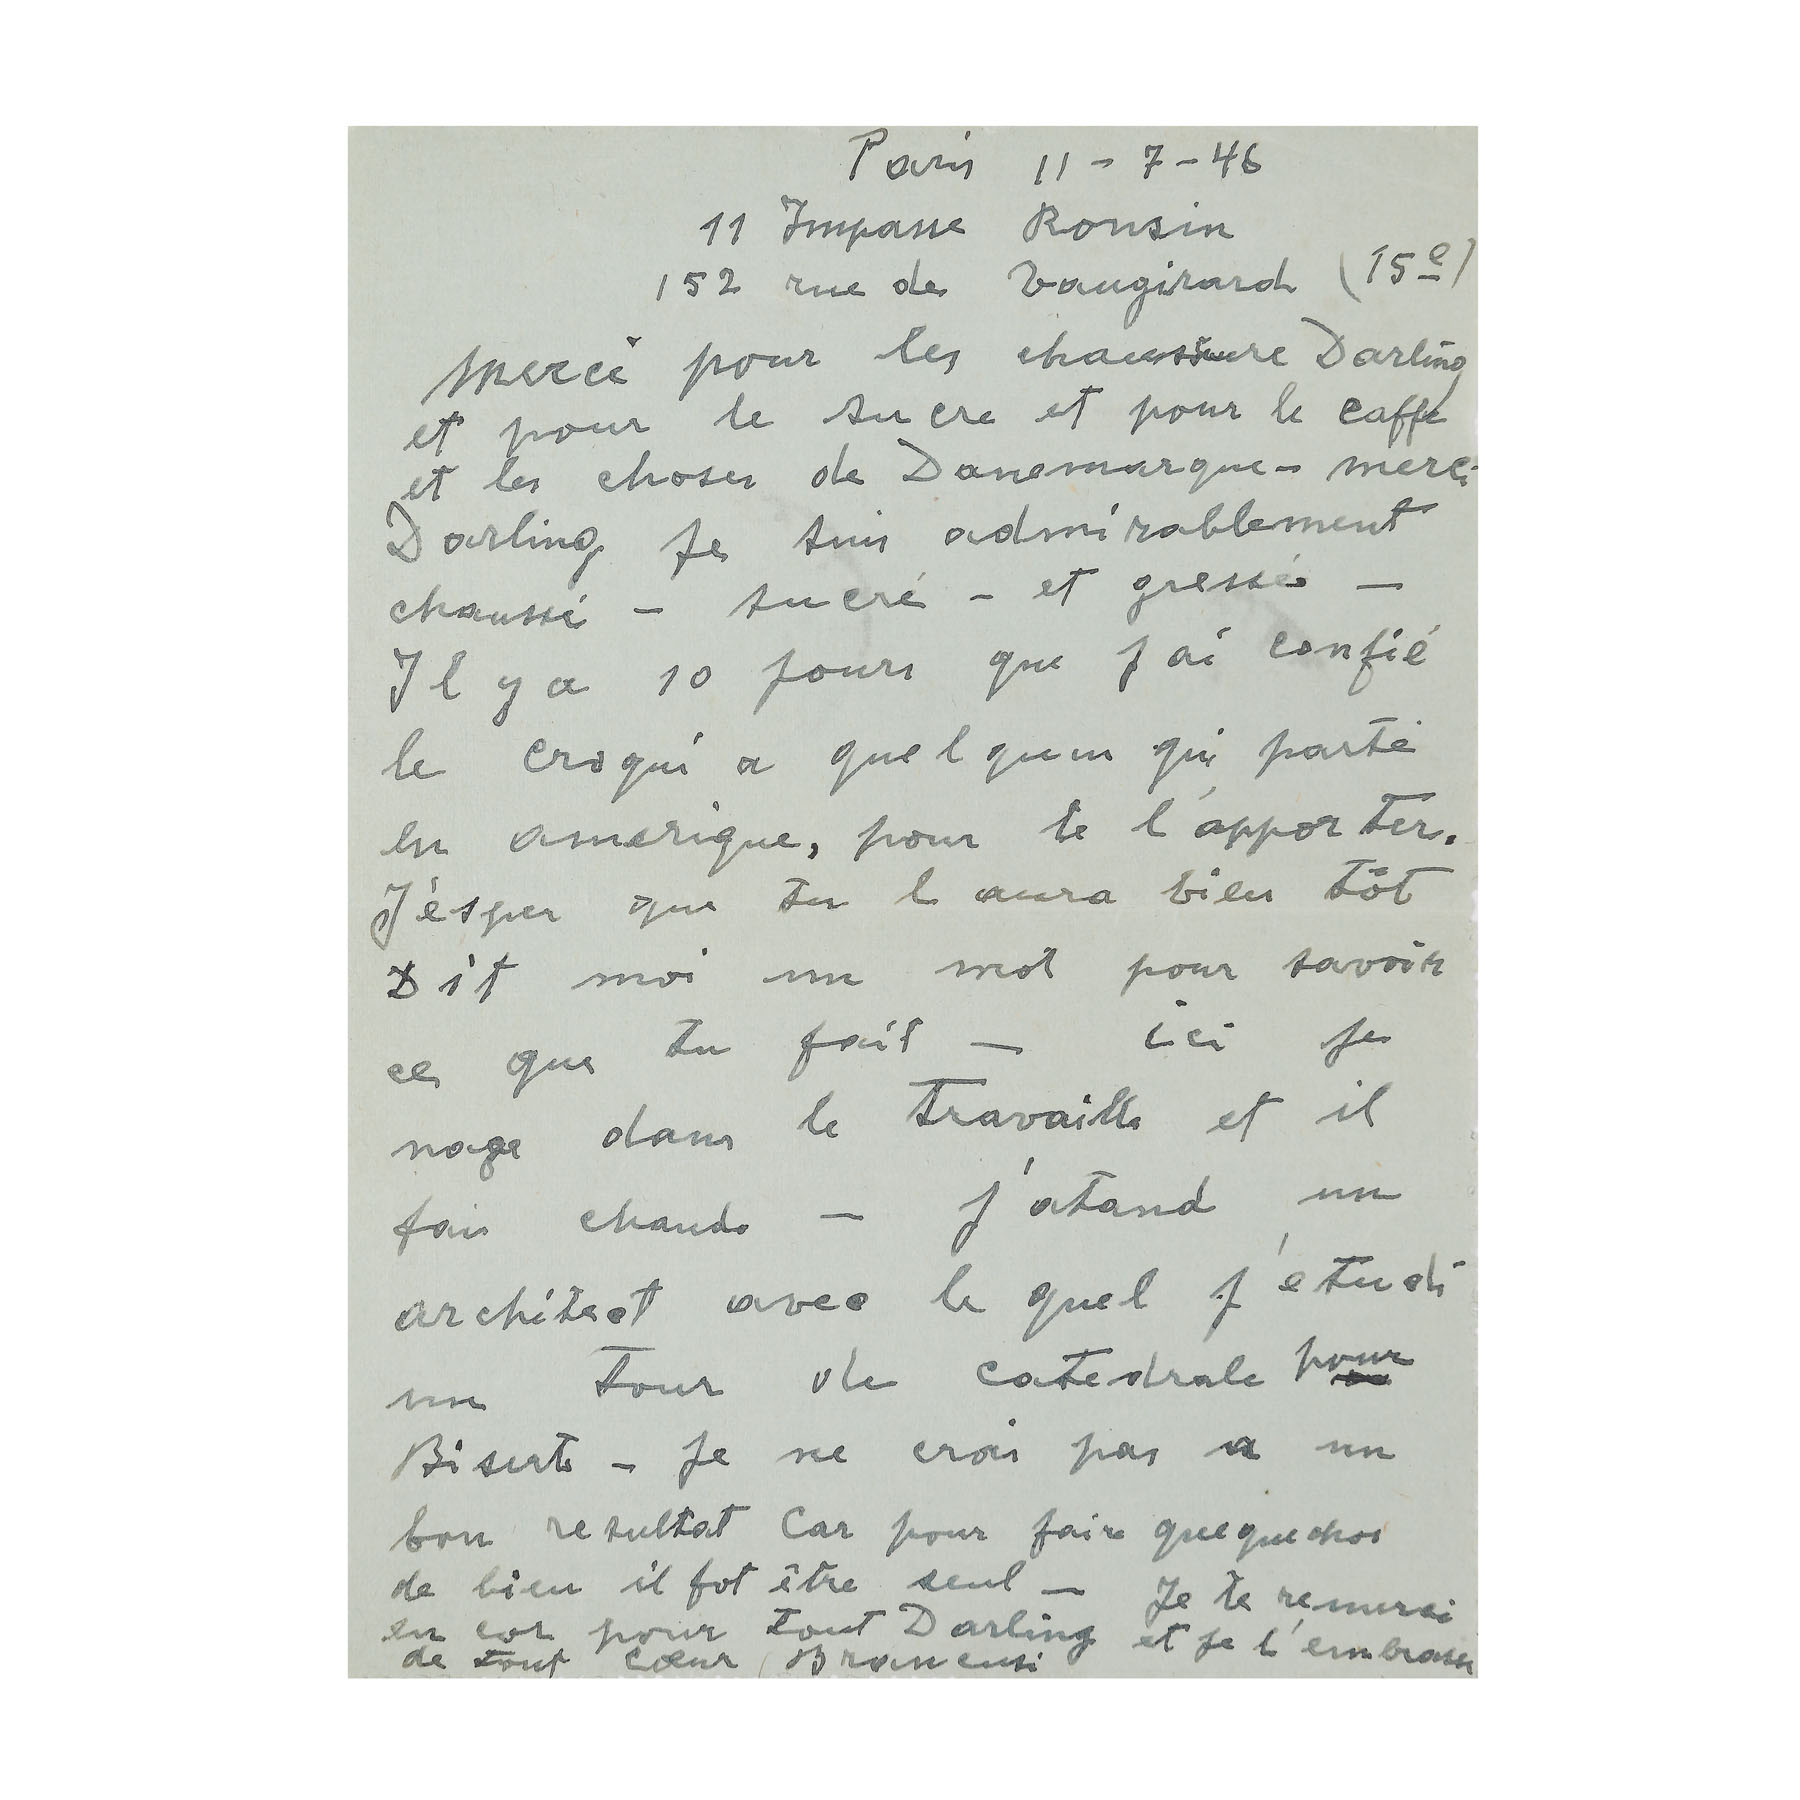 Paris 11-7-46
11 Impasse Ronsin
152 rue de Vaugirard (15e)
Merci pour les chaussure Darling
et pour le sucre et pour le caffe
et les choses de Danemarque - merci
Darling je suis admirablement
chaussé - sucré - et gressé -
Il y a 10 jours que j ai confié
le croqui a quelqueun qui parté
en amerique, pour te l'apporter.
J'ésper que tu l aura bien tôt
Dit moi un mot pour savoir
ce que tu fait - ici je
nage dans le travaille et il
fais chaud - j'atand un
architect avec le quel j'etudi
un tour de catedrale pour
Biserte - je ne crois pas a un
bon resultat Car pour faire quequechos
de bien il fot être seul - Je te remersi
en cor pour tout Darling et je t'embrasse
de tout cœur Brancusi